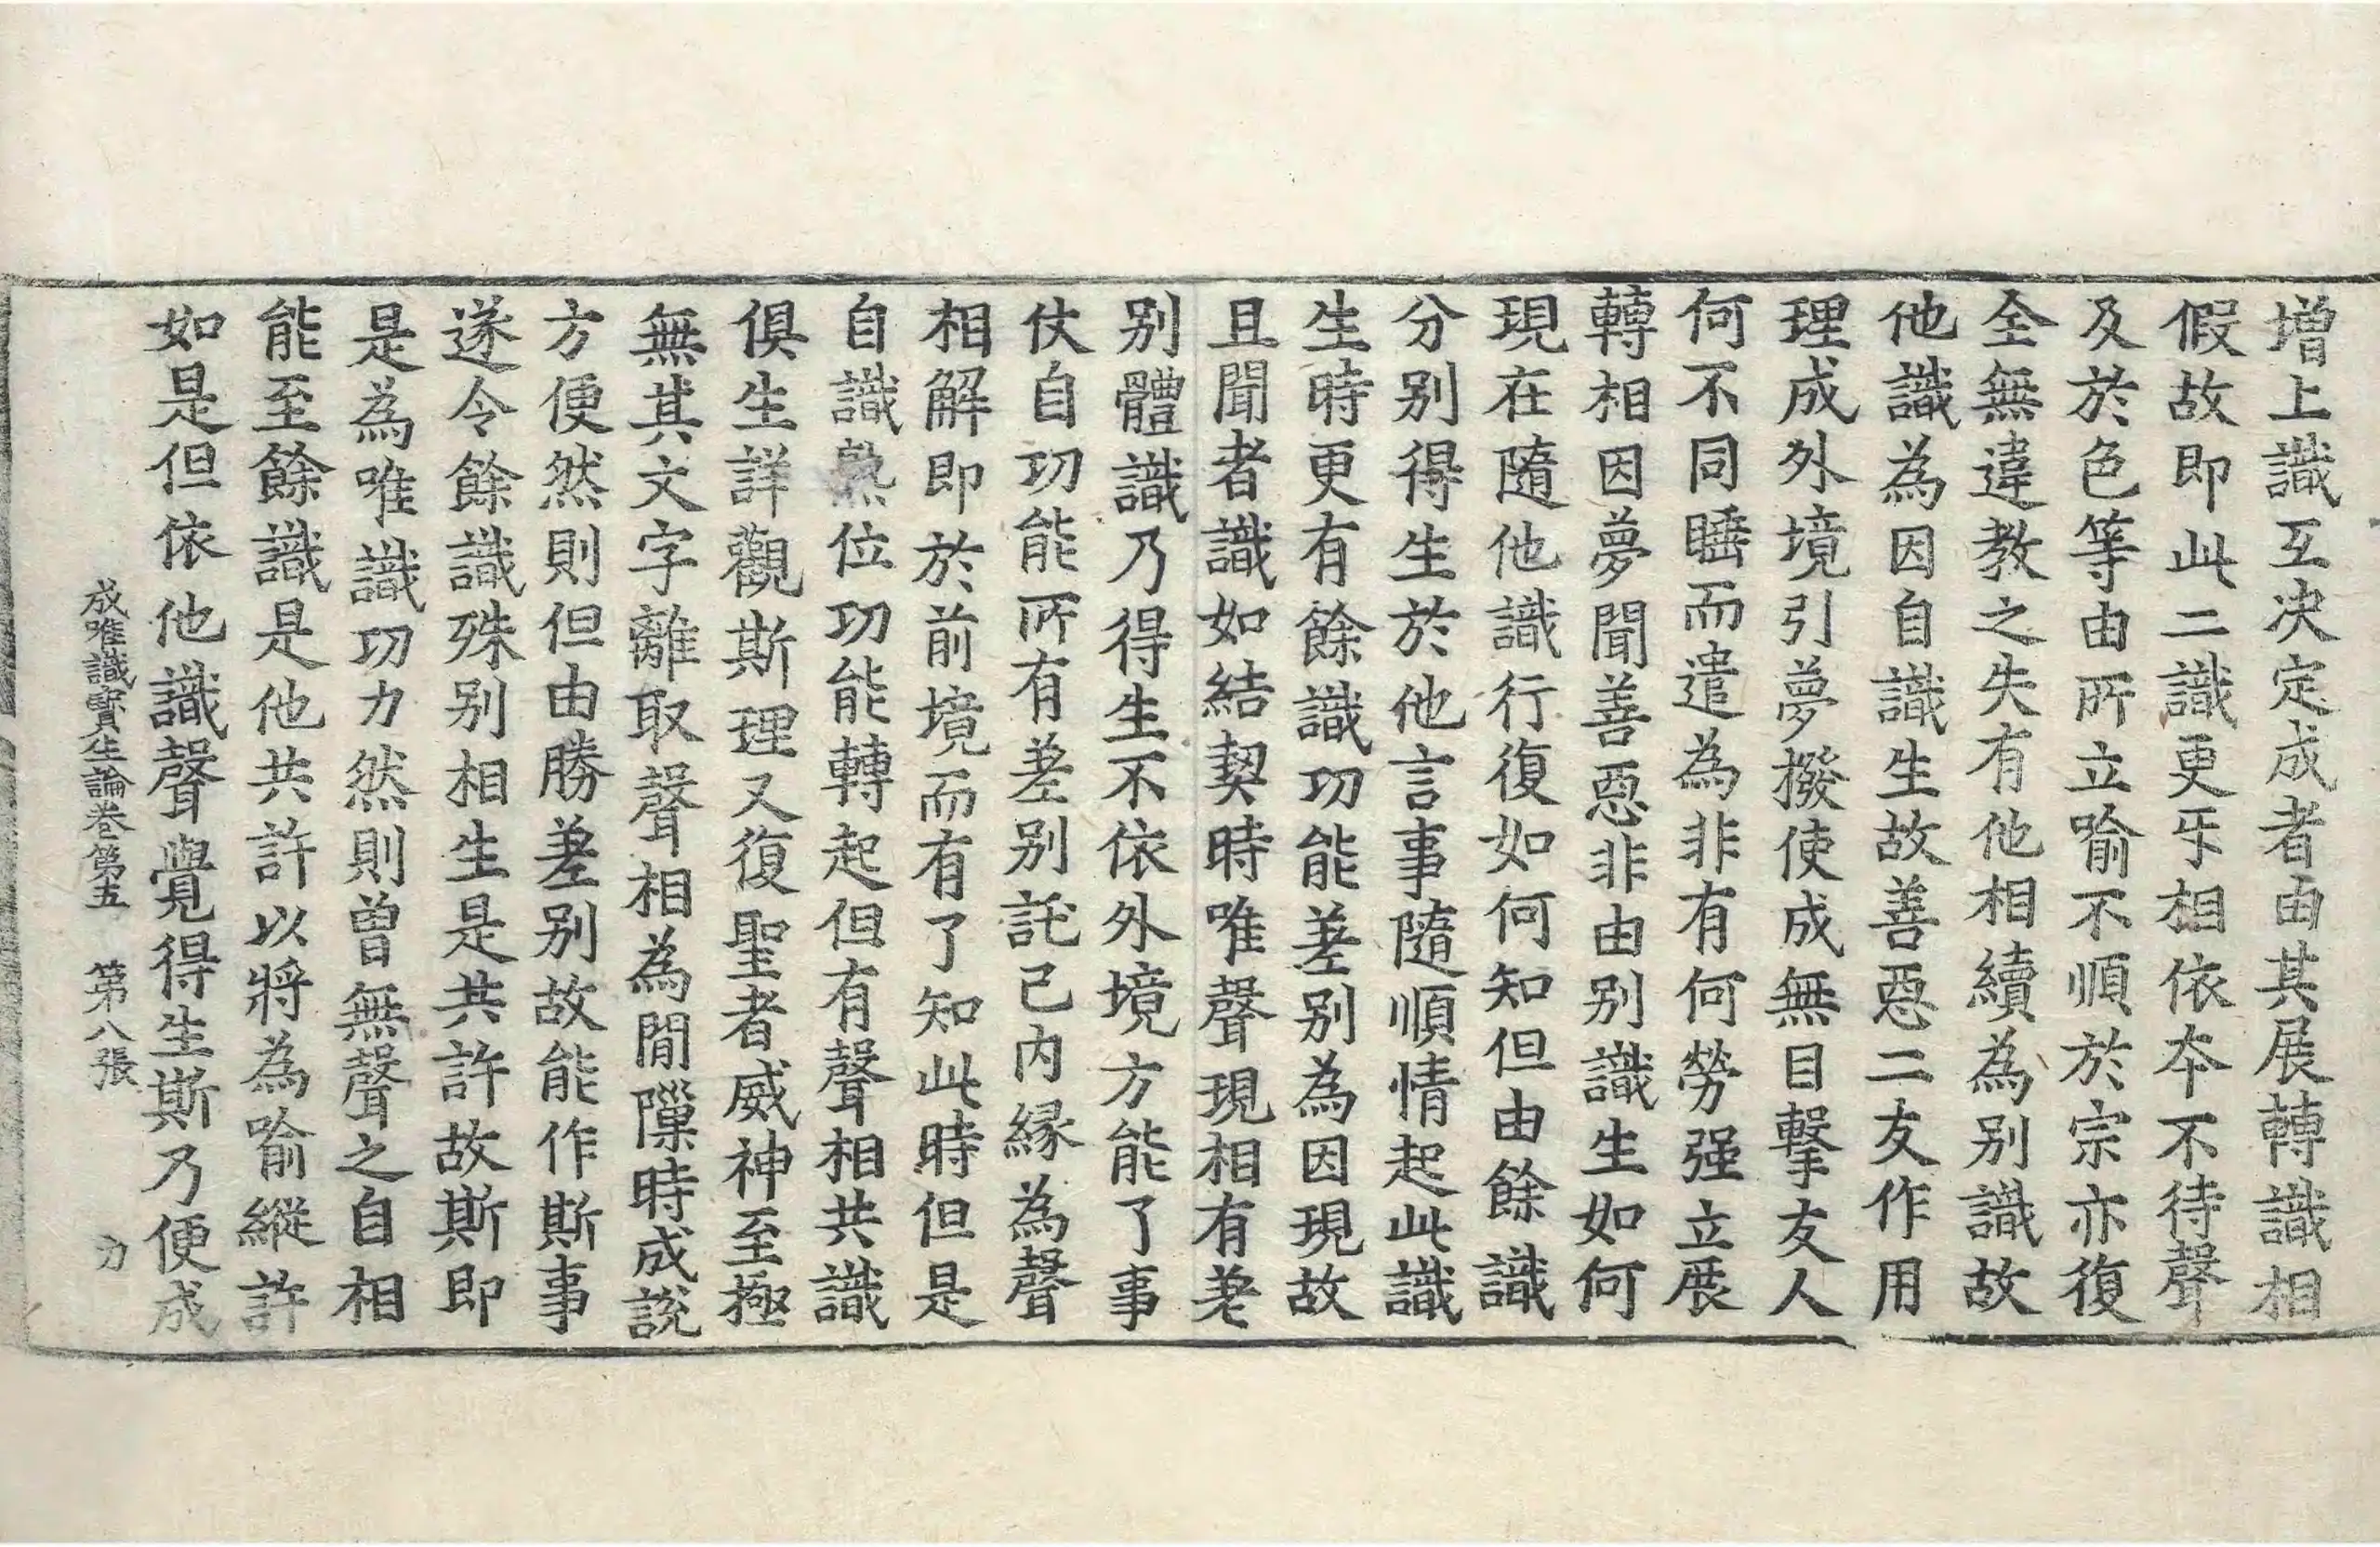 增上識互决定成者由其展轉識相
假故即此二識更乐相依本不待聲
及於色等由所立喻不順於宗亦復
全無違教之失有他相續為别識故
他識為因自識生故善惡二友作用
理成外境引夢撥使成無目擊友人
何不同睡而遣為非有何勞强立展
轉相因夢聞善惡非由别識生如何
現在隨他識行復如何知但由餘識
分别得生於他言事隨順情起此識
生時更有餘識功能差别為因現故
且聞者識如結契時唯聲現相有差
别體識乃得生不依外境方能了事
仗自功能所有差别託己内緣為聲
相解即於前境而有了知此時但是
自識熟位功能轉起但有聲相共識
俱生詳觀斯理又復聖者威神至極
無其文字離取聲相為閒隟時成說
方便然則但由勝差别故能作斯事
遂令餘識殊别相生是共許故斯即
是為唯識功力然則曾無聲之自相
能至餘識是他共許以將為喻縱許
如是但依他識聲覺得生斯乃便成
成唯識寳生論卷第五　第八張　力